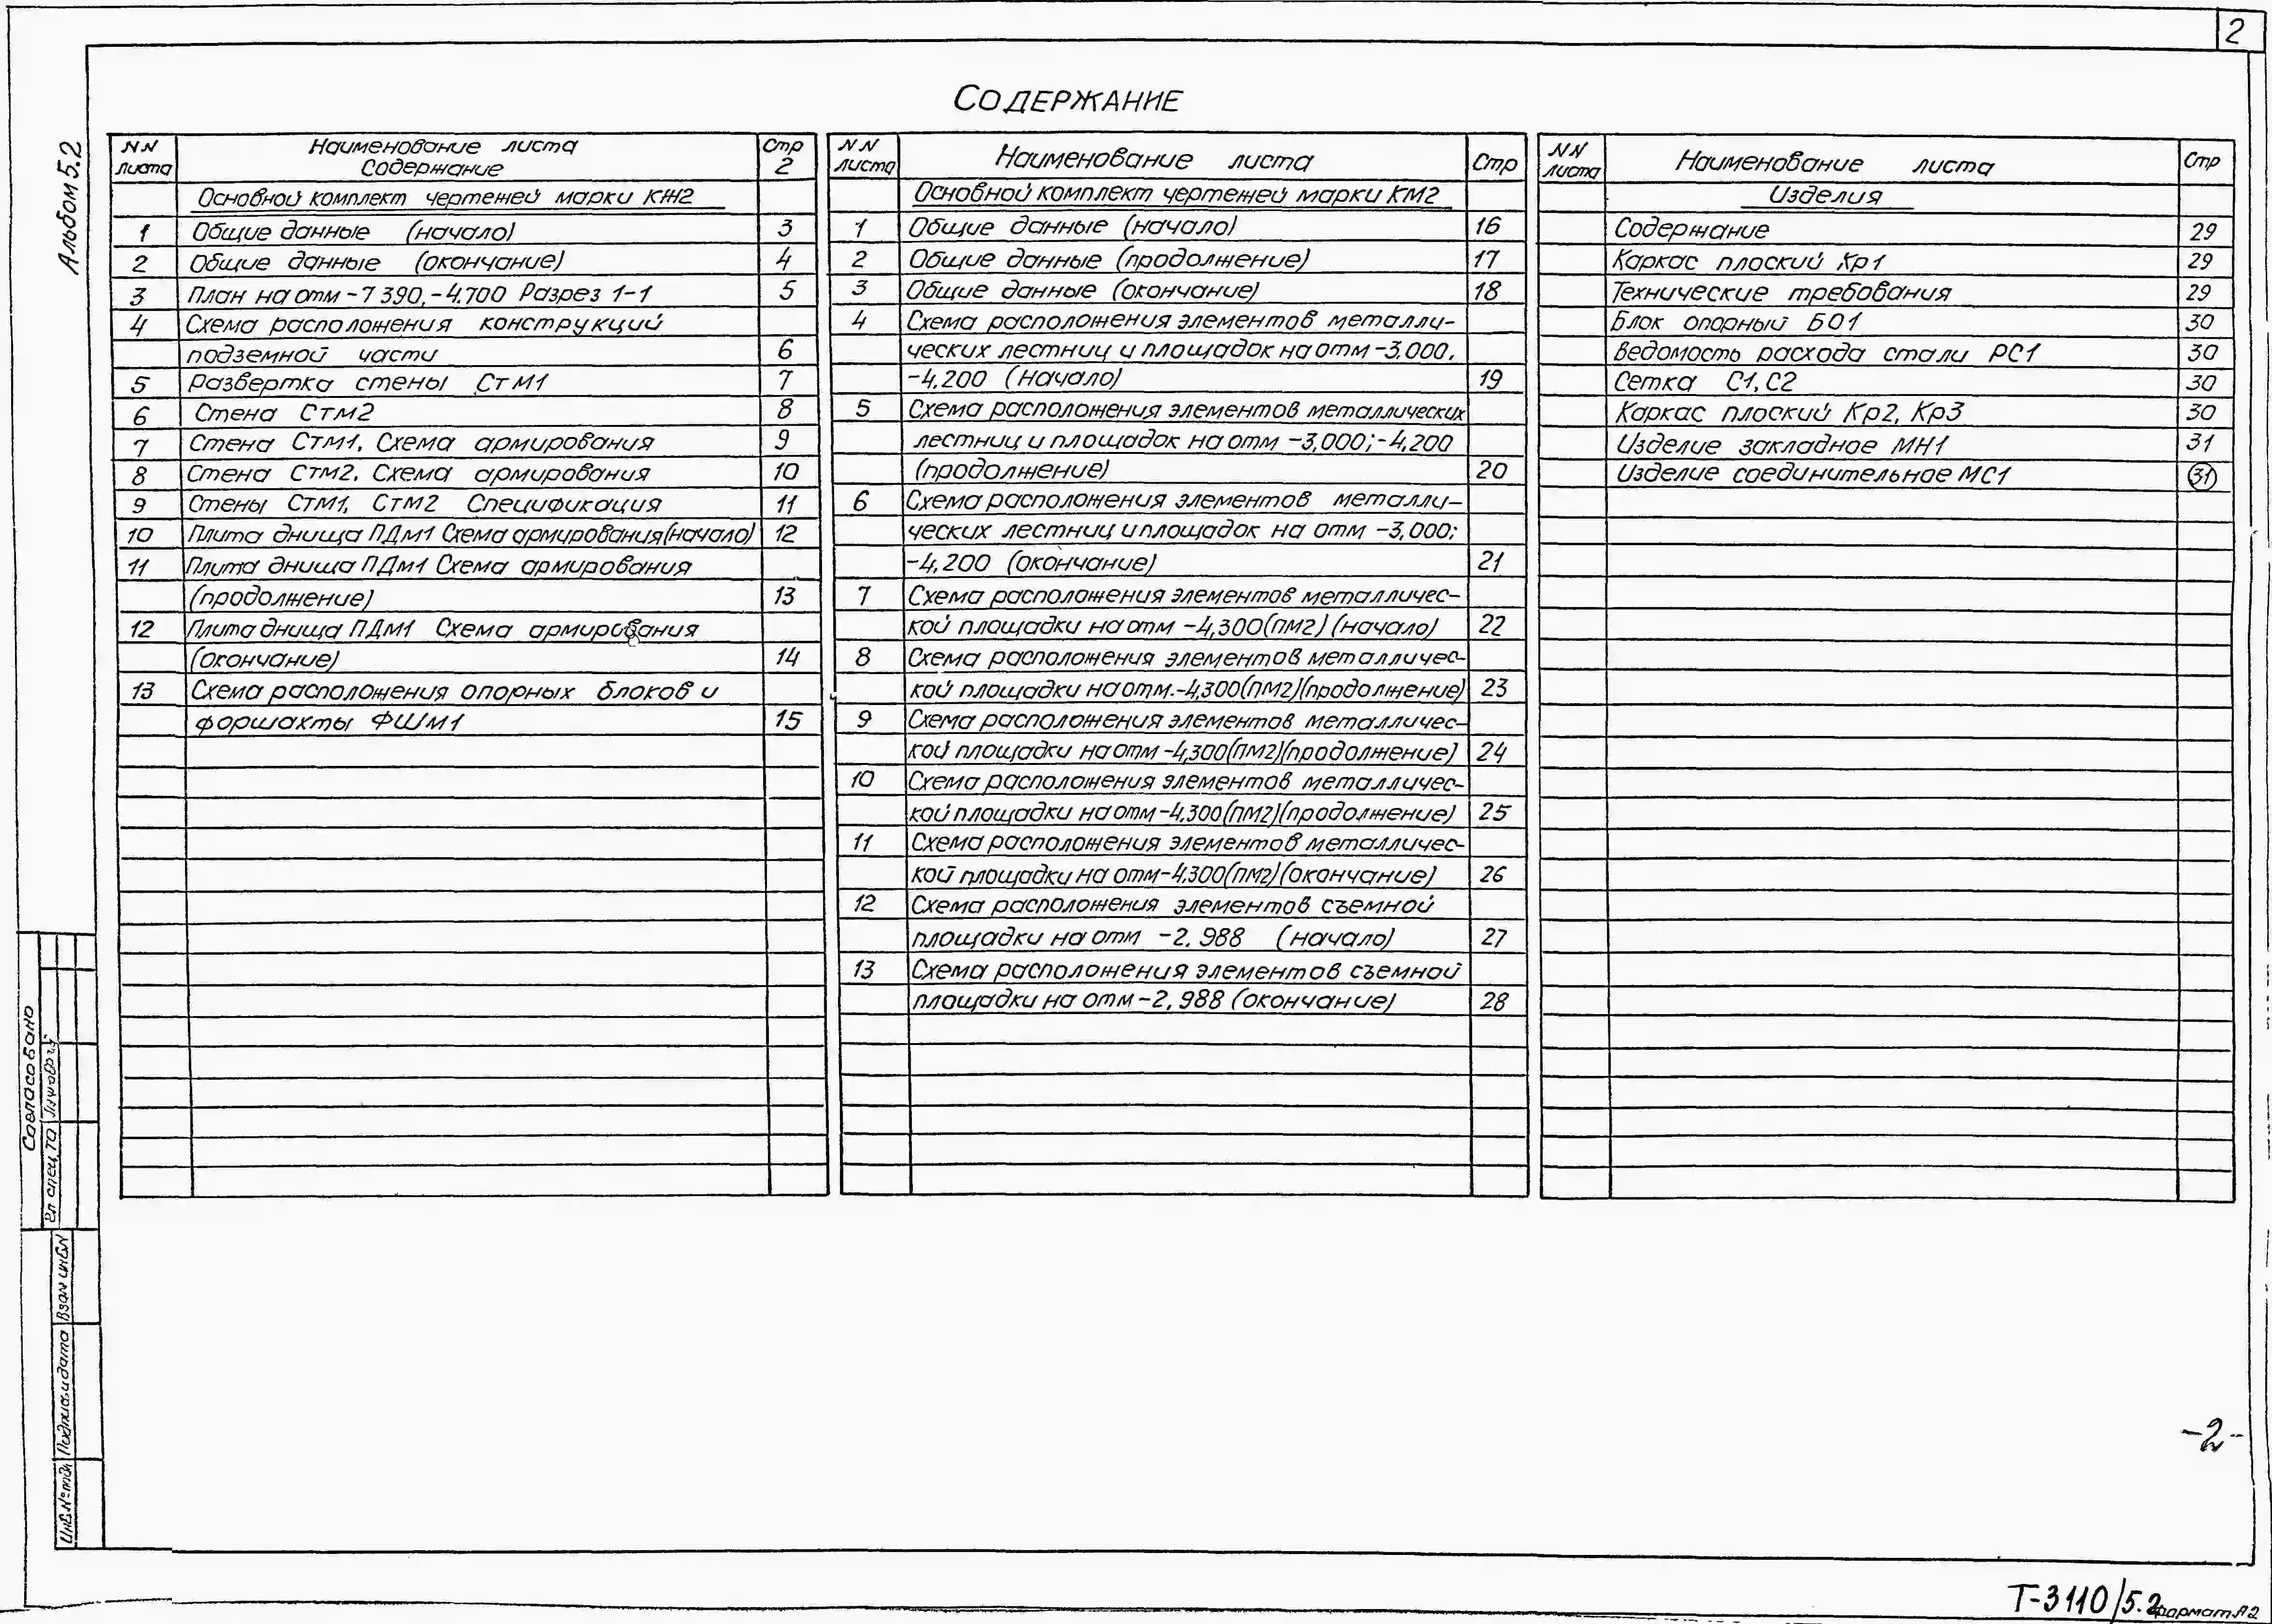 2
Альбом 5.2
СОДЕРЖАНИЕ
NN листа Наименование листа Стр
Содержание 2
Основной комплект чертежей марки КЖ2
1 Общие данные (начало) 3
2 Общие данные (окончание) 4
3 План на отм -7 390, -4.700 Разрез 1-1 5
4 Схема расположения конструкций
подземной части 6
5 Развертка стены СтМ1 7
6 Стена Стм2 8
7 Стена Стм1. Схема армирования 9
8 Стена Стм2. Схема армирования 10
9 Стены Стм1, Стм2 Спецификация 11
10 Плита днища ПДм1 Схема армирования (начало) 12
11 Плита днища ПДм1 Схема армирования
(продолжение) 13
12 Плита днища ПДм1 Схема армирования
(окончание) 14
13 Схема расположения опорных блоков и
форшахты ФШм1 15
NN листа Наименование листа Стр
Основной комплект чертежей марки КМ2
1 Общие данные (начало) 16
2 Общие данные (продолжение) 17
3 Общие данные (окончание) 18
4 Схема расположения элементов металли-
ческих лестниц и площадок на отм -3,000,
-4,200 (начало) 19
5 Схема расположения элементов металлических
лестниц и площадок на отм -3,000; -4,200
(продолжение) 20
6 Схема расположения элементов металли-
ческих лестниц и площадок на отм -3,000;
-4,200 (окончание) 21
7 Схема расположения элементов металличес-
кой площадки на отм -4,300 (ПМ2) (начало) 22
8 Схема расположения элементов металличес-
кой площадки на отм. -4,300 (ПМ2) (продолжение) 23
9 Схема расположения элементов металличес-
кой площадки на отм -4,300 (ПМ2) (продолжение) 24
10 Схема расположения элементов металличес-
кой площадки на отм -4,300 (ПМ2) (продолжение) 25
11 Схема расположения элементов металличес-
кой площадки на отм -4,300 (ПМ2) (окончание) 26
12 Схема расположения элементов съемной
площадки на отм -2,988 (начало) 27
13 Схема расположения элементов съемной
площадки на отм -2,988 (окончание) 28
NN листа Наименование листа Стр
Изделия
Содержание 29
Каркас плоский Кр1 29
Технические требования 29
Блок опорный БО1 30
Ведомость расхода стали РС1 30
Сетка С1, С2 30
Каркас плоский Кр2, Кр3 30
Изделие закладное МН1 31
Изделие соединительное МС1 31
Согласовано
Гл спец ТО
Взам инв N
Подпись и дата
Инв. № подл
-2-
Т-3110/5.2
формат А2